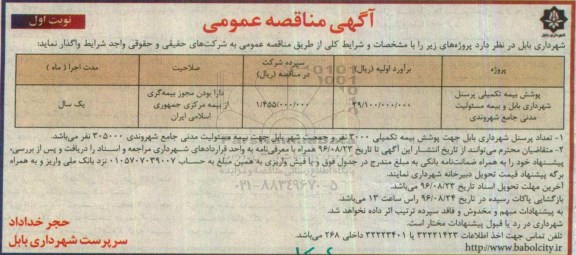 نوبت اول
آگهی مناقصه عمومی
شهرداری بابل
شهرداری بابل در نظر دارد پروژه‌های زیر را با مشخصات و شرایط کلی از طریق مناقصه عمومی به شرکت‌های حقیقی و حقوقی واجد شرایط واگذار نماید:
پروژه
برآورد اولیه (ریال)
سپرده شرکت در مناقصه (ریال)
صلاحیت
مدت اجرا ( ماه )
پوشش بیمه تکمیلی پرسنل شهرداری بابل و بیمه مسئولیت مدنی جامع شهروندی
۲۹/۱۰۰/۰۰۰/۰۰۰
۱/۴۵۵/۰۰۰/۰۰۰
دارا بودن مجوز بیمه‌گری از بیمه مرکزی جمهوری اسلامی ایران
یک سال
۱- تعداد پرسنل شهرداری بابل جهت پوشش بیمه تکمیلی ۳۰۰۰ نفر و جمعیت شهر بابل جهت بیمه مسئولیت مدنی جامع شهروندی ۳۰۵۰۰۰ نفر می‌باشد.
۲- متقاضیان محترم می‌توانند از تاریخ انتشار این آگهی تا تاریخ ۹۶/۰۸/۲۳ همراه با معرفی‌نامه به واحد قراردادهای شهرداری مراجعه و اسناد را دریافت و پس از بررسی،
پیشنهاد خود را به همراه ضمانت‌نامه بانکی به مبلغ مندرج در جدول فوق و یا فیش واریزی به همین مبلغ به حساب ۰۱۰۵۷۰۷۰۳۹۰۰۷ نزد بانک ملی واریز و به همراه
برگه پیشنهاد قیمت تحویل دبیرخانه شهرداری نمایند.
آخرین مهلت تحویل اسناد تاریخ ۹۶/۰۸/۲۳ می‌باشد.
بازگشایی پاکات رسیده در تاریخ ۹۶/۰۸/۲۴ راس ساعت ۱۳ می‌باشد.
به پیشنهادات مبهم و مخدوش و فاقد سپرده ترتیب اثر داده نخواهد شد.
شهرداری در رد یا قبول پیشنهادات مختار است.
تلفن تماس جهت اخذ اطلاعات ۳۲۲۲۱۴۲۳ یا ۳۲۲۲۳۴۰۱ داخلی ۲۶۸ می‌باشد.
http://www.babolcity.ir
حجر خداداد
سرپرست شهرداری بابل
۰۲۱-۸۸۳۴۹۶۷۰-۵